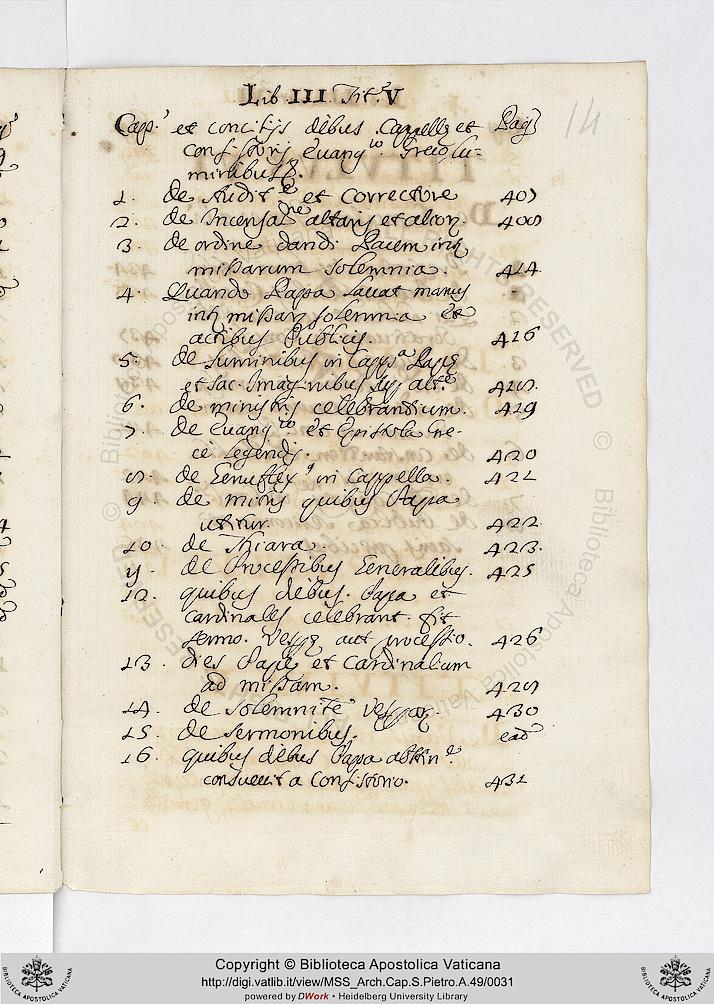 Lib III Tit. V
14
Capp. et concilijs dẽbus Cappellę et Pag
Consistorij Euang.co Greco, lu-
minibus
1. de Audit.e et Correctore 407
2. de Incensat.ne altaris et alior. 408
3. de ordine dandi Pacem intr
missarum solemnia. 414
4. Quando Papa lavat manus
intr missarum solemnia et
actibus Publicis. 416
5. de Luminibus in Capp.a Papę
et sac. Imaginibus sup alt.e 418.
6. de ministris celebrantium. 419
7. de Euang.co et Epistola Gre-
ce legendis. 420
8. de Genuflex. in Cappella. 421
9. de mitris quibus Papa
utitur. 422
10. de Thiara. 423.
11. de Processibus Generalibus. 425
12. quibus diebus. Papa et
Cardinales celebrant. fit
sermo. Vesp. aut processio. 426
13. dies Papę et Cardinalium
ad missam. 428
14. de solemnite Vesper. 430
15. de sermonibus. ead
16. quibus dẽbus Papa abstin.e
consuevit a Consistorio. 431
Copyright © Biblioteca Apostolica Vaticana
http://digi.vatlib.it/view/MSS_Arch.Cap.S.Pietro.A.49/0031
powered by DWork • Heidelberg University Library